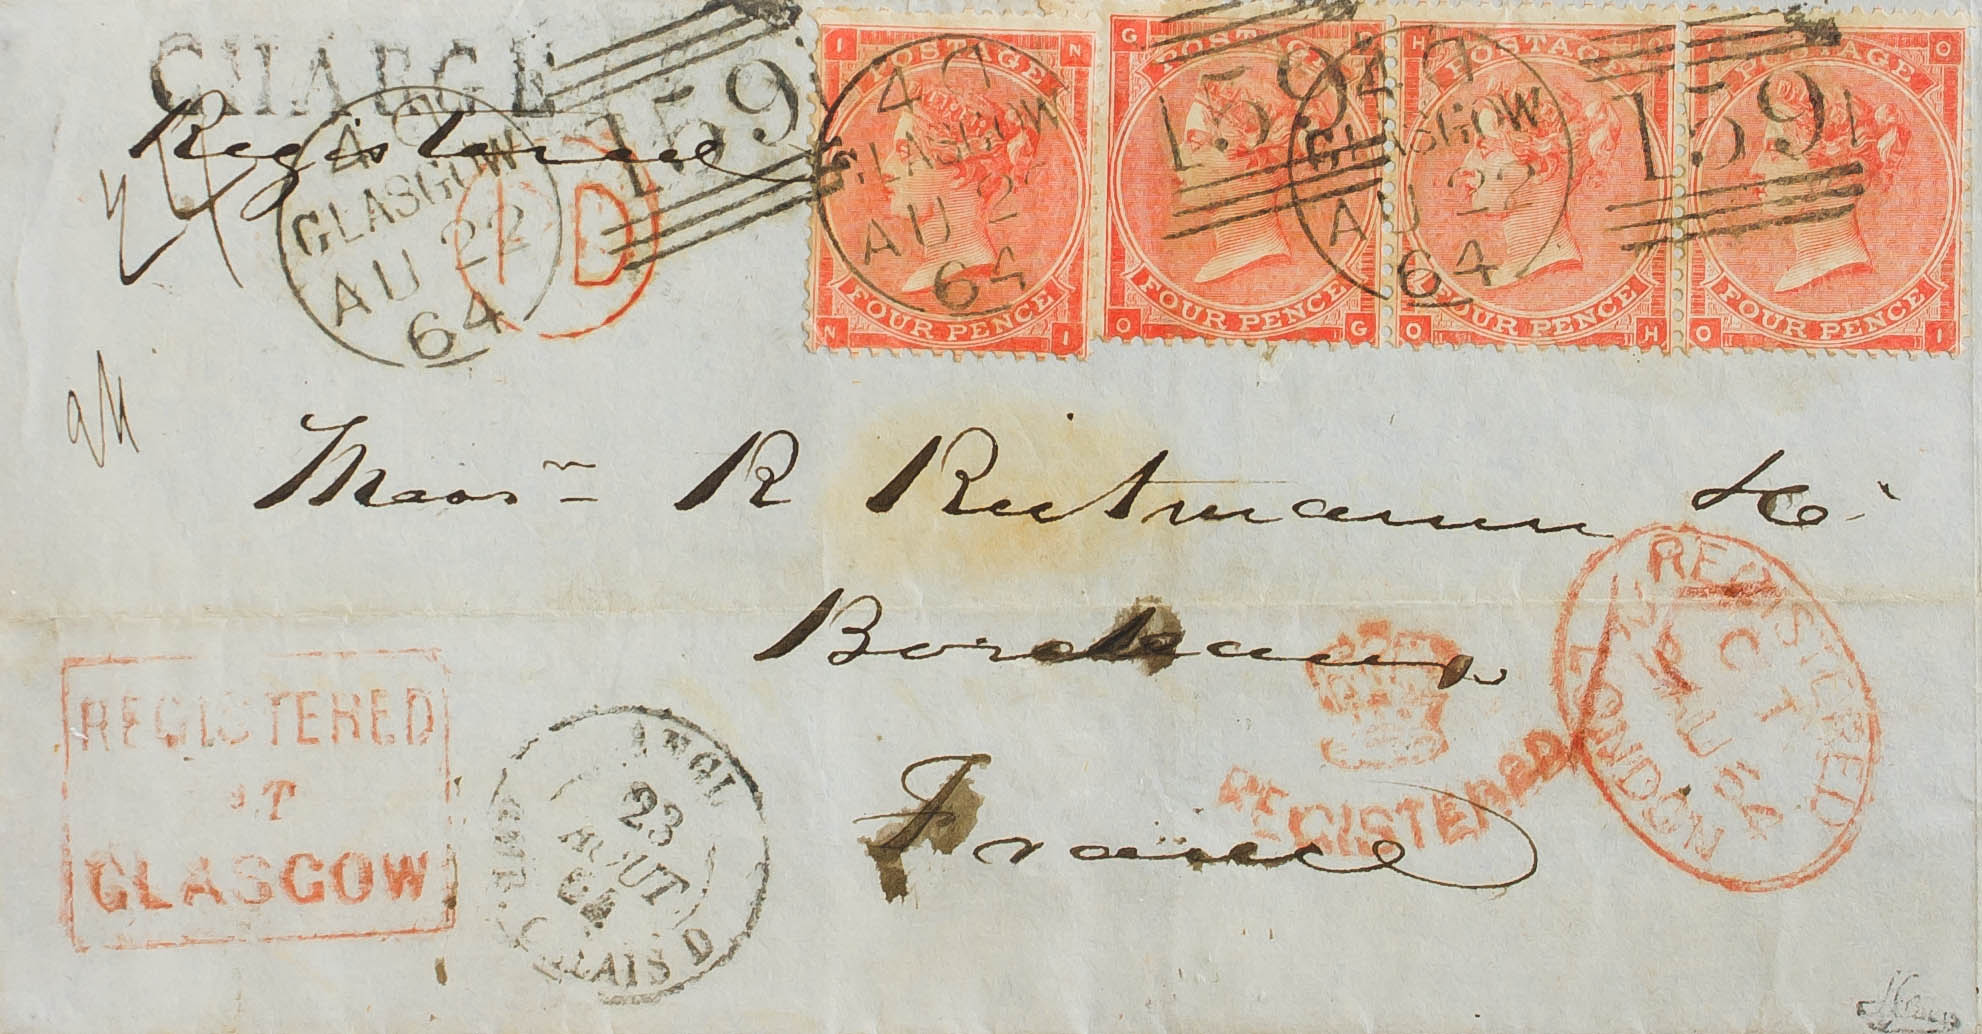 CHARGE
Registered
40
GLASGOW
AU 22
64
159
PD
I N
POSTAGE
FOUR PENCE
N I
GLASGOW
AU 2
64
G O
POSTAGE
FOUR PENCE
O G
159
H O
POSTAGE
FOUR PENCE
O H
GLASGOW
AU 22
64
O
POSTAGE
FOUR PENCE
O I
159
Messrs R Reitmann & Co
Bordeaux
France
REGISTERED
AT
GLASGOW
ANGL
23
AOUT
64
CALAIS D
REGISTERED
REGISTERED
LONDON
AU 64